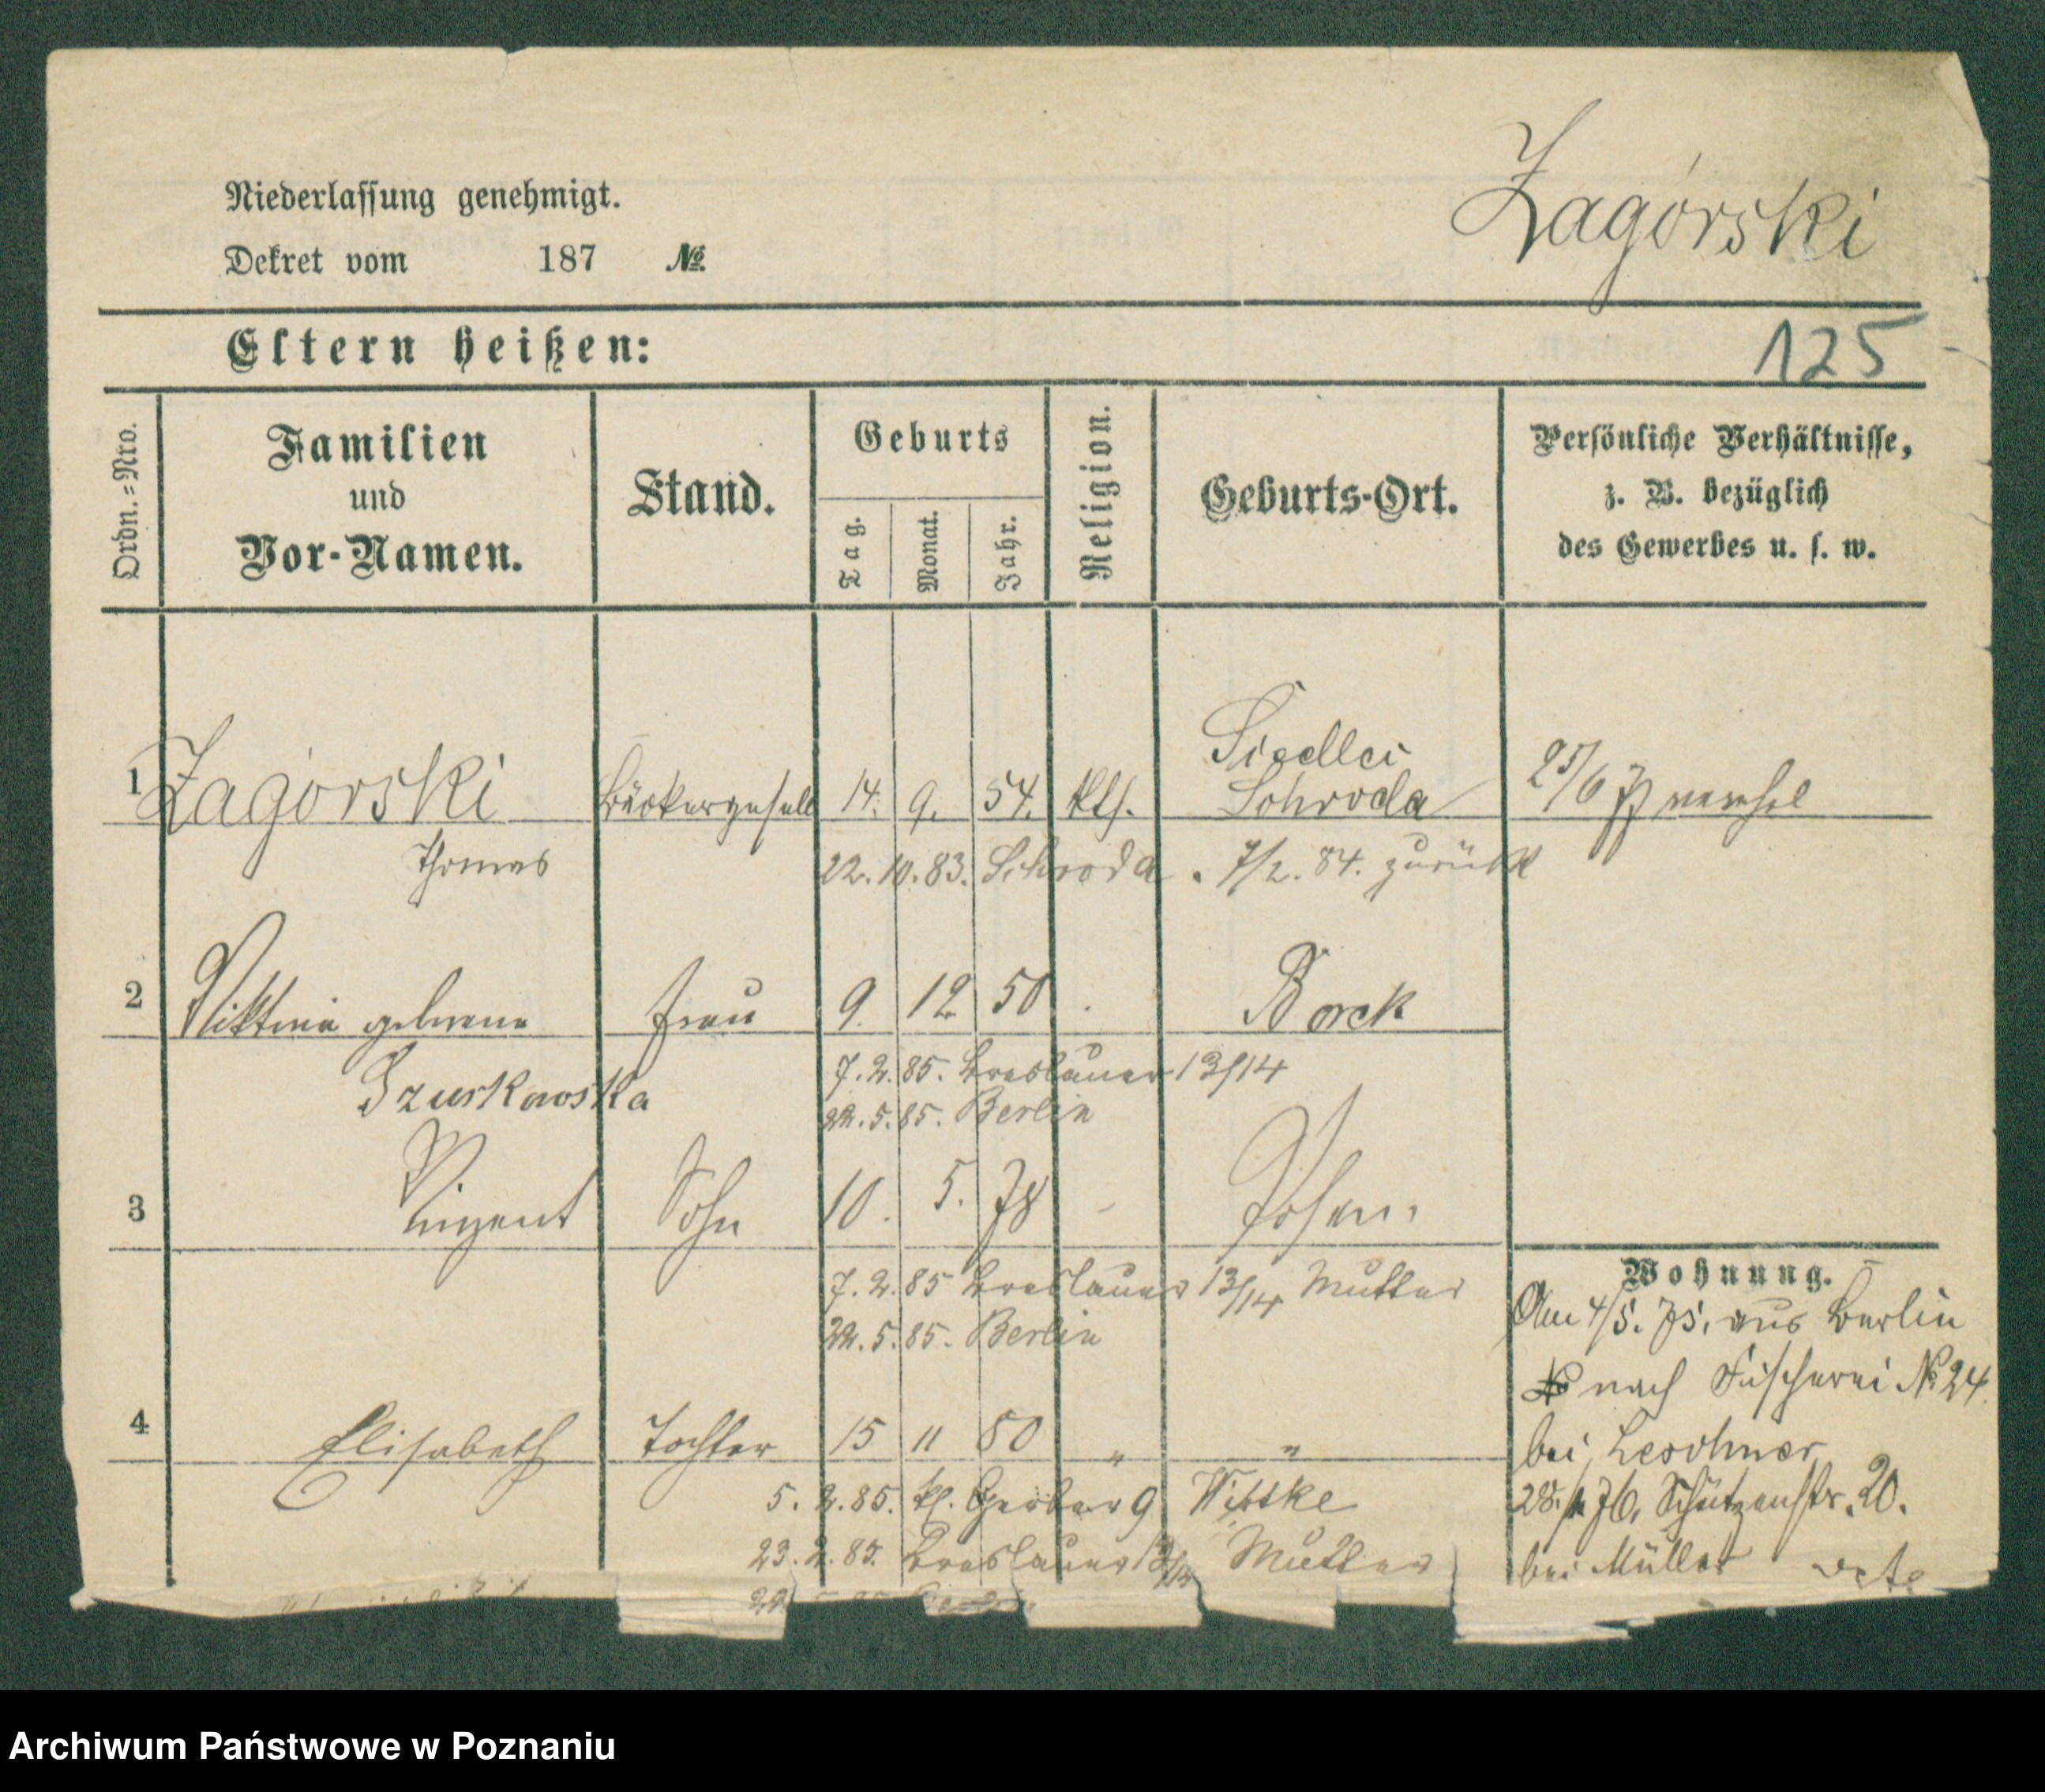 Zagórski
Niederlassung genehmigt.
Dekret vom 187 №
Eltern heißen:
125
Ordn.=Nro.
Familien
und
Vor-Namen.
Stand.
Geburts
Tag.
Monat.
Jahr.
Religion.
Geburts-Ort.
Persönliche Verhältnisse,
z. B. bezüglich
des Gewerbes u. s. w.
Siedlec
1 Zagórski Bäckergesell 14. 9. 54. kth. Schroda 25/6
Thomas 22. 10. 83. Schroda. 7/2. 84. zurück
2 Viktoria geborene Frau 9. 12 50 Borek
Szurkowska
7. 2. 85. Breslauer 13/14
22. 5. 85. Berlin
3 Vinzent Sohn 10. 5. 78 - Posen.
7. 2. 85 Breslauer 13/14 Mutter
22. 5. 85. Berlin
4 Elisabeth Tochter 15 11 80 " "
5. 2. 85. kl. Gerber 9 Wittke
23. 2. 85. Breslauer 13/14 Mutter
Wohnung.
Am 4/5. 75. aus Berlin
nach Fischerei № 24.
bei Leschner
76, Schützenstr. 20.
bei Müller
Archiwum Państwowe w Poznaniu